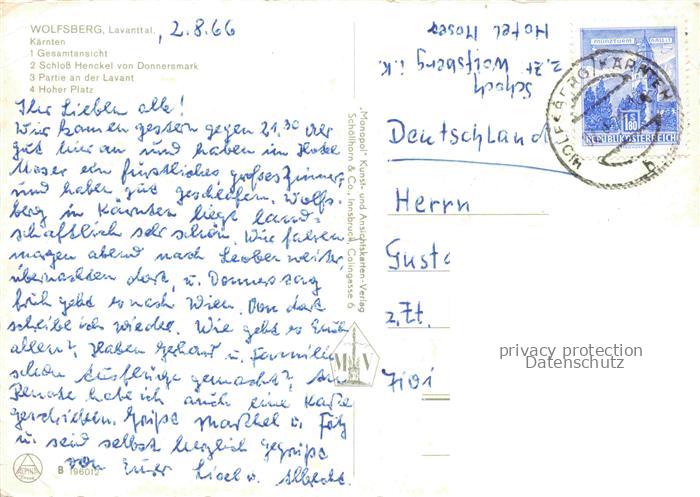 WOLFSBERG, Lavanttal,
Kärnten
1 Gesamtansicht
2 Schloß Henckel von Donnersmark
3 Partie an der Lavant
4 Hoher Platz
, 2.8.66
Ihr Lieben alle!
Wir kamen gestern gegen 21.30 Uhr
gut hier an und haben im Hotel
Moser ein fürstliches großes Zimmer,
und haben gut geschlafen. Wolfs-
berg in Kärnten liegt land-
schaftlich sehr schön. Wir fahren
morgen abend nach Leoben weiter,
übernachten dort u. Donnerstag
früh geht es nach Wien. Von dort
schreibe ich wieder. Wie geht es Euch
allen? Haben Gerhard u. Familie
schon Ausflüge gemacht? An
Renate habe ich auch eine Karte
geschrieben. Grüße u.
u. seid selbst herzlich gegrüßt
von Eurer Liesel u. Albrecht.
B 196012
"Monopol", Kunst- und Ansichtskarten-Verlag
Schöllhorn & Co., Innsbruck, Colingasse 6
M V
Schoch
z. Zt Wolfsberg i. K.
Hotel Moser
Deutschland
Herrn
Gust
z. Zt.
MÜNZTURM HALL I. T.
S 1.80
REPUBLIK ÖSTERREICH
WOLFSBERG/KÄRNTEN
b
privacy protection
Datenschutz